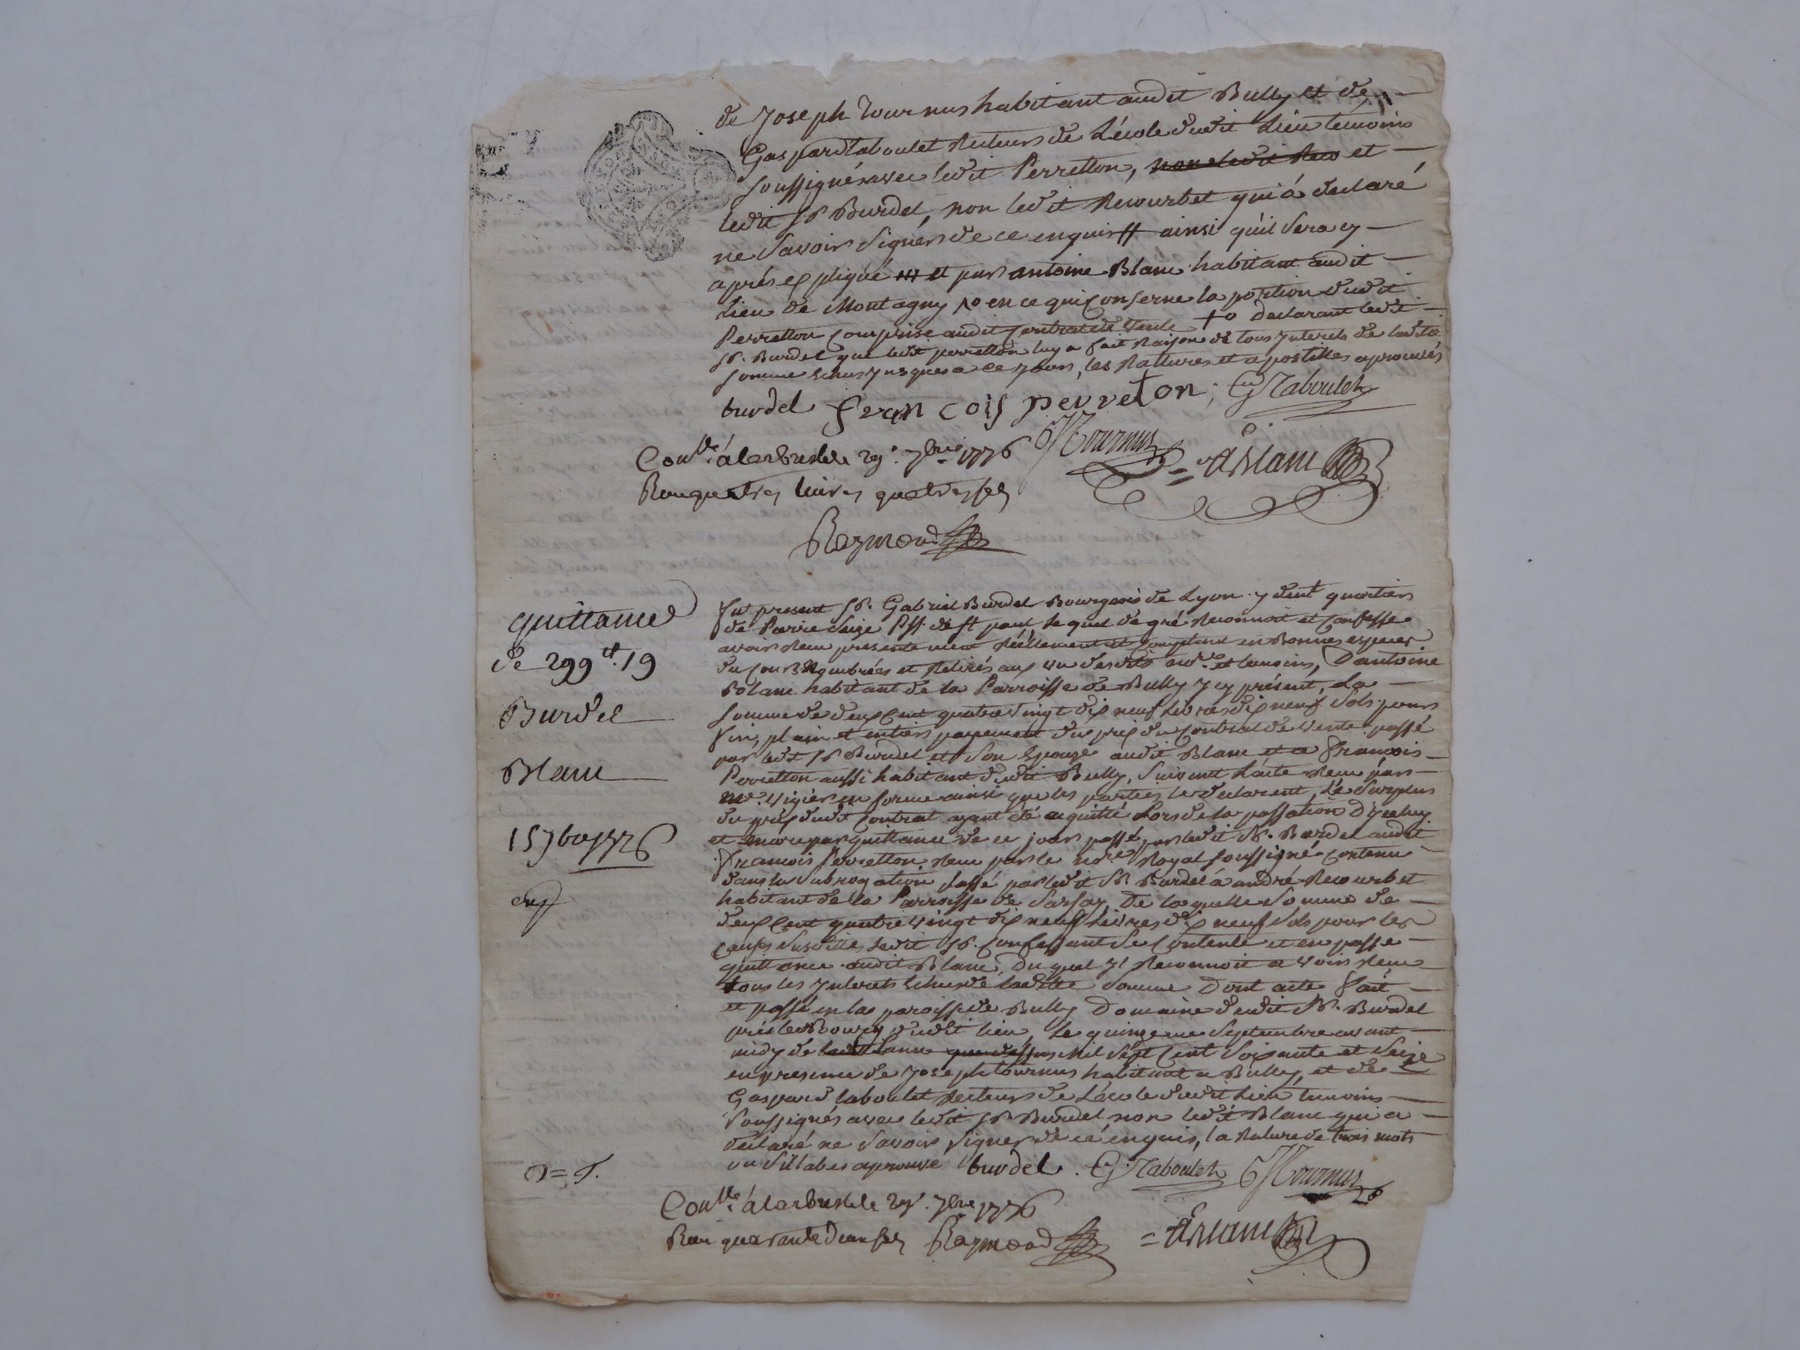 de Joseph Tournus habitant audit Bully et de
Gaspard taboulet Recteurs de Lécole dudit Lieu temoins
soussignés avec ledit Perretton, et
ledit Sr. Burdel, non ledit Recourbet qui á declaré
ne savoir signer de ce enquis ainsi quil sera cy
aprés expliqué et par antoine Blanc habitant audit
Lieu de Montagny en ce qui Conserne la portion dudit
Perretton Comprise audit Contrat de Vente declarant ledit
Sr. Burdel que ledit perretton luy a fait Raison de tous Interets de ladite
somme Echus Jusques a ce jour, les Ratures et apostilles aprouvés
burdel francois perreton, G Taboulet
J Tournus
Conlle. á Larbresle le 29e. 7bre 1776
Reçu quatres livres quatres sols
Raymond
quittance
de 299 tt. 19
Burdel
Blanc
15 7bre 1776
fut present Sr. Gabriel Burdel Bourgeois de Lyon y demt. quartier
de Pierre Scize Psse de St paul Lequel de gré Reconnoit et Confesse
avoir Reçu presentement Réellement et Comptant en Bonnes especes
du Cours Nombrées et Retirés aux vu desdits nore. et temoins, D'antoine
Blanc habitant de la Parroisse de Bully Icy présent, La
somme de deux Cent quatre vingt dix neuf Livres dix neuf sols pour
fin, plain et entier payement du prix du Contrat de Vente passé
par ledit Sr Burdel et son Epouze audit Blanc et a François
Perretton aussi habitant dudit Bully, suivant L'acte Reçu par
Me. Vigier en forme ainsi que les parties le declarent, Le surplus
du prix dudit Contrat ayant été acquitté Lors de la passation D'iceluy
et encore par quittance de ce jour passé par ledit Sr. Burdel audit
francois Perretton Reçu par le nore Royal soussigné Contenu
dans la subrogation passé par ledit Sr Burdel á andré Recourbet
habitant de la Parroisse de Sarsay, De laquelle somme de
deux Cent quatre vingt dix neuf Livres dix neuf sols pour les
causes susdittes ledit Sr. Confessant se Contente et en passe
quittance audit Blanc, Duquel Il Reconnoit avoir Reçu
tous les Interets Echus de laditte somme Dont acte fait
et passé en la paroisse de Bully Domaine dudit Sr. Burdel
prés le Bourg dudit lieu le quinze Septembre avant
midy de Lanné Mil Sept Cent Soixante et Seize
en presence de Joseph tournus habitant a Bully, et de
Gaspard taboulet Recteurs de Lécole dudit Lieu temoins
soussignés avec ledit Sr Burdel, non ledit Blanc qui a
declaré ne savoir signer de ce enquis, la Rature de trois mots
ou sillabes aprouvé burdel. G. Taboulet J Tournus
Conlle. á Larbresle le 29e. 7bre 1776
Reçu quarante deux sols Raymond